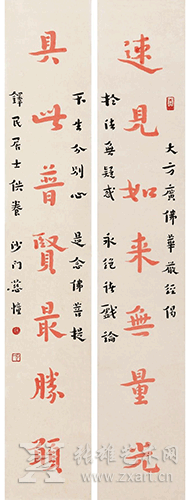 大方廣佛華嚴經偈
速見如来無量光
於法無疑惑 永絕諸戲論
不生分別心 是念佛菩提
具此普賢最勝願
鐸民居士供養 沙門慧幢
张雄艺术网
www.zxart.cn